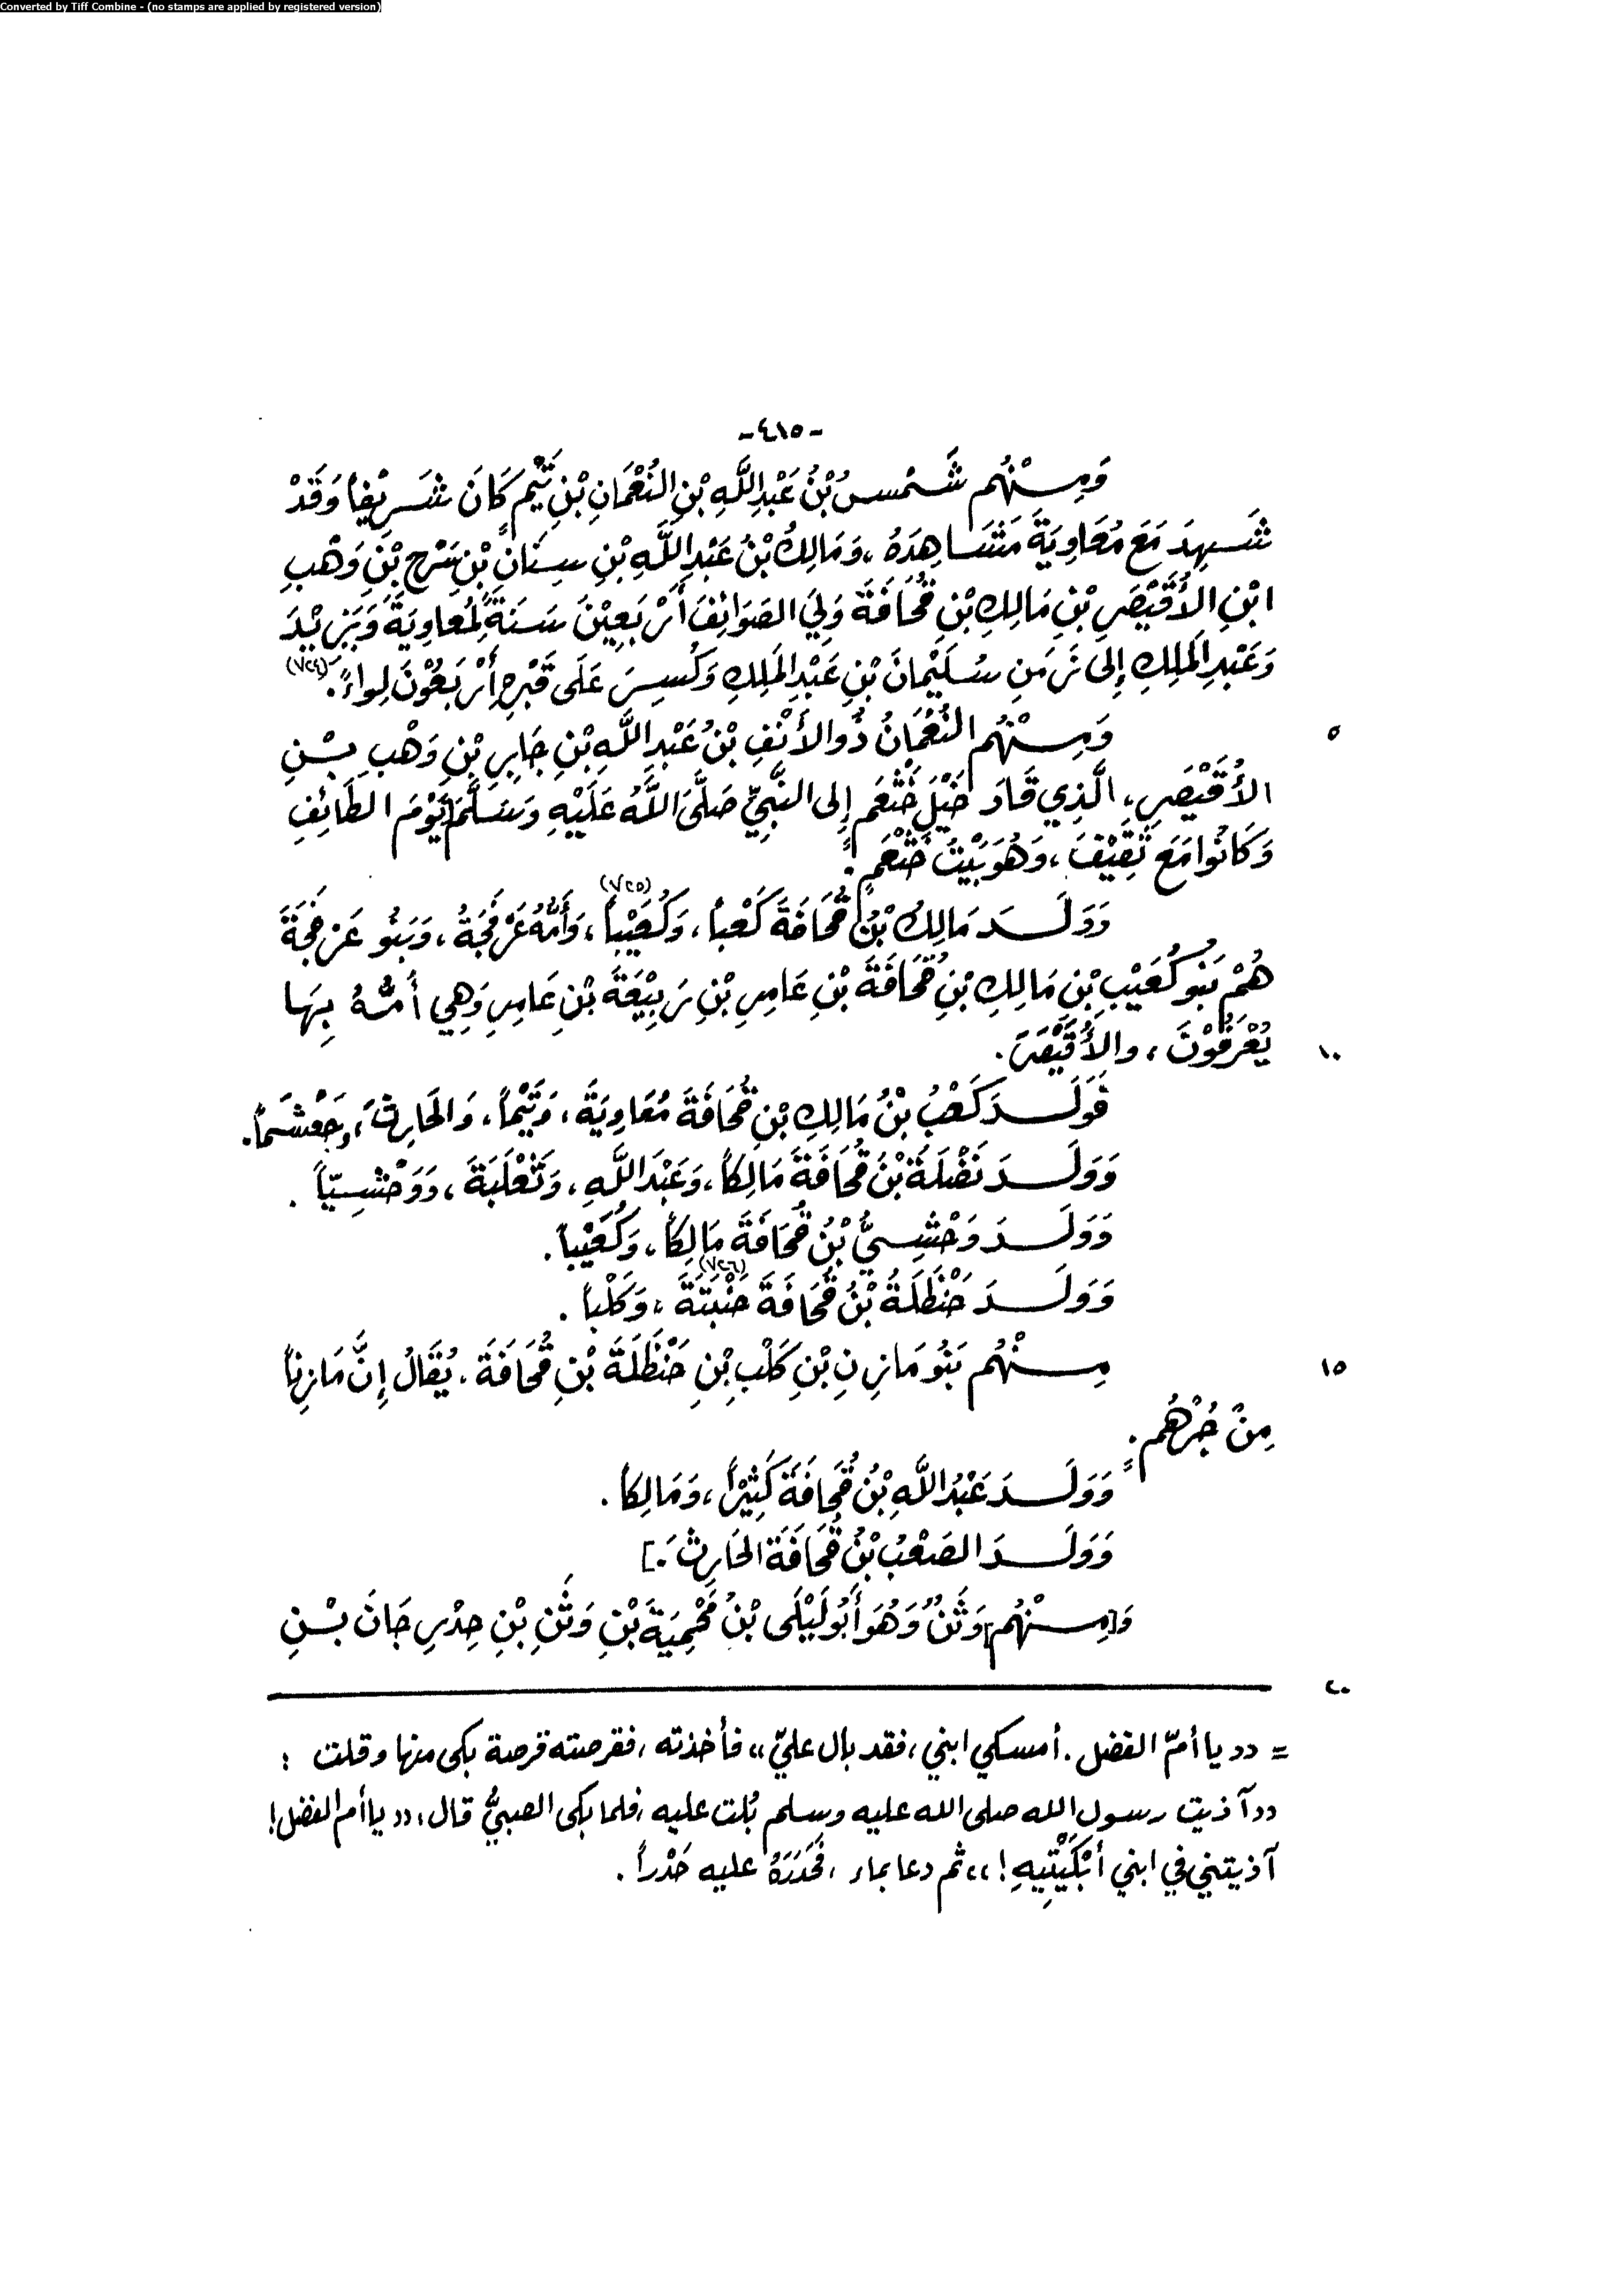 Converted by Tiff Combine - (no stamps are applied by registered version)
-٤١٥-
وَمِنْهُم شَمْسُ بْنُ عَبْدِ اللَّهِ بْنِ النُّعْمَانِ بْنِ تَيْمٍ كَانَ شَرِيْفاً وَقَدْ
شَهِدَ مَعَ مُعَاوِيَةَ مَشَاهِدَهُ، وَمَالِكُ بْنُ عَبْدِ اللَّهِ بْنِ سِنَانِ بْنِ سَرْحِ بْنِ وَهْبِ
ابْنِ الأُقَيْصَرِ بْنِ مَالِكِ بْنِ قُحَافَةَ وَلِيَ الصَوَائِفَ أَرْبَعِيْنَ سَنَةً لِمُعاوِيَةَ وَيَزِيْدَ
وَعَبْدِ المَلِكِ إِلى زَمَنِ سُلَيْمَانَ بْنِ عَبْدِ المَلِكِ وَكُسِرَ عَلَى قَبْرِهِ أَرْبَعُوْنَ لِواءً. (٧٢٤)
وَمِنْهُم النُّعْمَانُ ذُو الأَنْفِ بْنُ عَبْدِ اللَّهِ بْنِ جَابِرِ بْنِ وَهْبِ بْنِ ٥
الأُقَيْصَرِ، الَّذِي قَادَ خَيْلَ خَثْعَمٍ إِلى النَّبِيِّ صَلَّى اللَّهُ عَلَيْهِ وَسَلَّمَ يَوْمَ الطَائِفِ
وَكَانُوا مَعَ ثَقِيْفَ، وَهُوَ بَيْتُ خَثْعَمٍ.
وَوَلَدَ مَالِكُ بْنُ قُحَافَةَ كَعْباً، وَكُعَيْباً (٧٢٥)، وَأُمُّهُ عَرْفَجَةُ، وَبَنُو عَرْفَجَةَ
هُمْ بَنُو كُعَيْبِ بْنِ مَالِكِ بْنِ قُحَافَةَ بْنِ عَامِرِ بْنِ رَبِيْعَةَ بْنِ عَامِرٍ وَهِي أُمُّهُ بِهَا
يُعْرَفُوْنَ، والأُقَيْصَرَ. ١٠
فَوَلَدَ كَعْبُ بْنُ مَالِكِ بْنِ قُحَافَةَ مُعَاوِيَةَ، وَتَيْماً، وَالحَارِثَ، وَجُعْشُماً.
وَوَلَدَ نَضْلَةُ بْنُ قُحَافَةَ مَالِكاً، وَعَبْدَ اللَّهِ، وَثَعْلَبَةَ، وَوَحْشِيّاً.
وَوَلَدَ وَحْشِيُّ بْنُ قُحَافَةَ مَالِكاً، وَكُعَيْباً.
وَوَلَدَ حَنْظَلَةُ بْنُ قُحَافَةَ حَنْبَتَةَ (٧٢٦)، وَكَلْباً.
مِنْهُم بَنُو مَازِنِ بْنِ كَلْبِ بْنِ حَنْظَلَةَ بْنِ قُحَافَةَ، يُقَالُ إِنَّ مَازِناً ١٥
مِنْ جُرْهُمٍ.
وَوَلَدَ عَبْدُ اللَّهِ بْنُ قُحَافَةَ كَثِيْراً، وَمَالِكاً.
وَوَلَدَ الصَعْبُ بْنُ قُحَافَةَ الحَارِثَ.]
وَ[مِنْهُم] وَثَنٌ وَهُوَ أَبُو لَيْلَى بْنُ مَحْمِيَةَ بْنِ وَثَنِ بْنِ حِدْسِ جَانَ بْنِ
٢٠
= ,, يا أمّ الفضل. أمسكي ابني، فقد بال عليّ،، فأخذته، فقرصته قرصة بكى منها وقلت :
,, آذيت رسول الله صلى الله عليه وسلم بُلت عليه، فلما بكى الصبيُّ قال: ,, يا أم الفضل!
آذيتني في ابني أَبْكَيْتِيهِ! ،، ثم دعا بماء، فَحَدَرَهُ عليه حَدْراً.